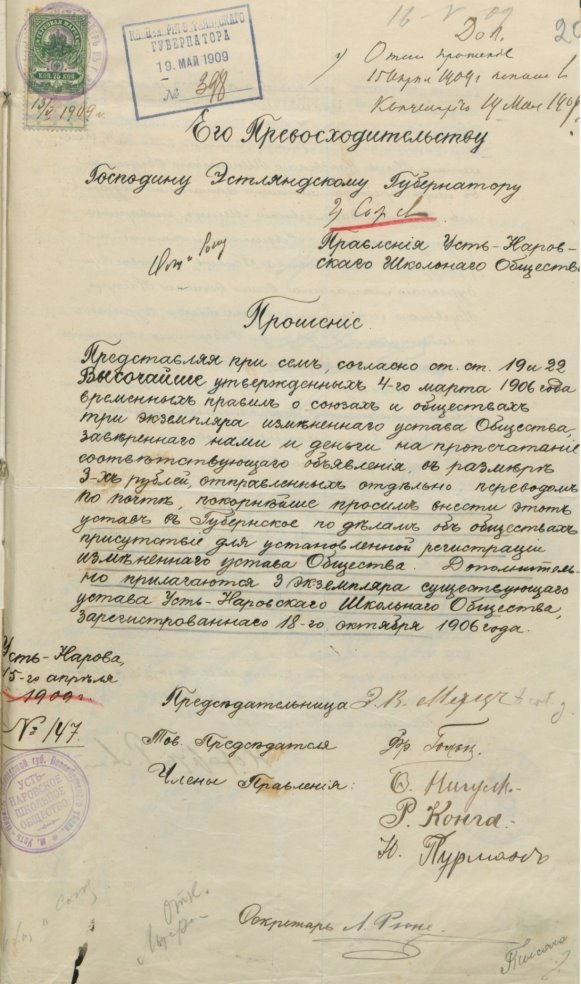 16-V-09
20
КАНЦЕЛЯРІЯ ЭСТЛЯНДСКАГО
ГУБЕРНАТОРА
19. МАЙ 1909
№ 398
КОП. 75 КОП
15/IV 1909 г.
15 апрѣля 1909 г
14 Мая 1909
Его Превосходительству
Господину Эстляндскому Губернатору
Правленія Усть-Наров-
скаго Школьнаго Обществ
Прошеніе.
Представляя при семъ, согласно ст. ст. 19 и 22
Высочайше утвержденныхъ 4-го марта 1906 года
временныхъ правилъ о союзахъ и обществахъ
три экземпляра измѣненнаго устава Общества,
завѣреннаго нами и деньги на пропечатаніе
соотвѣтствующаго объявленія, въ размѣрѣ
3-хъ рублей, отправленныхъ отдѣльно переводомъ
по почтѣ, покорнѣйше просимъ внести этотъ
уставъ въ Губернское по дѣламъ объ обществахъ
присутствіе для установленной регистраціи
измѣненнаго устава Общества. Дополнитель-
но прилагаются 3 экземпляра существующаго
устава Усть-Наровскаго Школьнаго Общества,
зарегистрованнаго 18-го октября 1906 года.
Усть-Нарова,
15-го апрѣля
1909 г.
№ 147
Предсѣдательница
Тов. Предсѣдателя
Члены Правленія:
Р. Конга.
Ю. Пурманъ
УСТЬ-
НАРОВСКОЕ
ШКОЛЬНОЕ
ОБЩЕСТВО
Секретарь